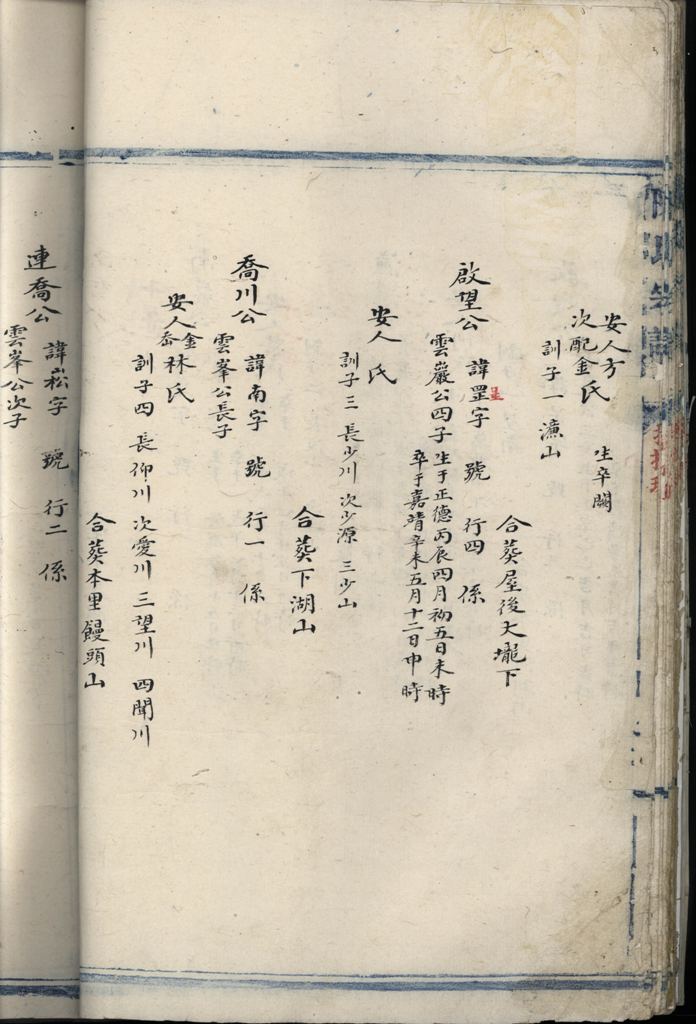 安人方
次配金氏 生卒闕
訓子一 濂山
合葵屋後大壠下
啟望公 諱罡字 號 行四 係
雲巖公四子 生于正德丙辰四月初五日未時
卒于嘉靖辛未五月十二日申時
安人 氏
訓子三 長少川 次少源 三少山
合葵下湖山
喬川公 諱南字 號 行一 係
雲峯公長子
安人金
林氏
訓子四 長仰川 次愛川 三望川 四聞川
合葵本里饅頭山
連喬公 諱崧字 號 行二 係
雲峯公次子